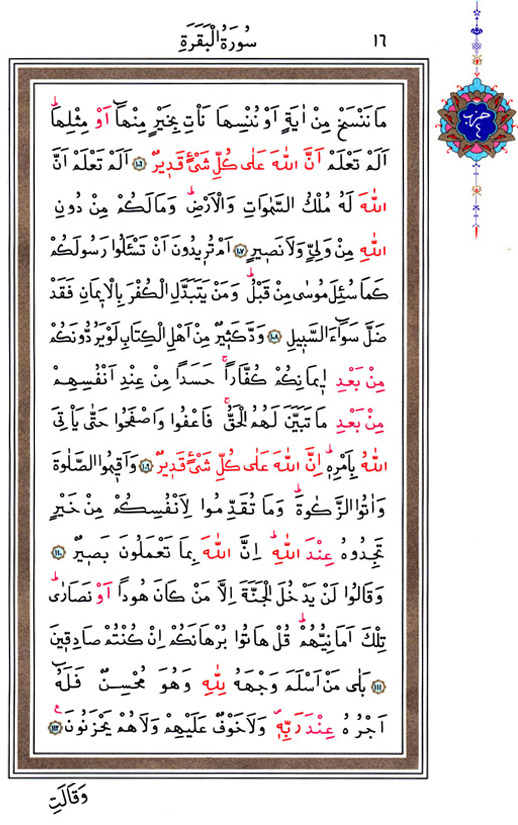 ١٦ سُورَةُ الْبَقَرَةِ
حزب ٤
مَا نَنْسَخْ مِنْ اٰيَةٍ اَوْ نُنْسِهَا نَأْتِ بِخَيْرٍ مِنْهَٓا اَوْ مِثْلِهَاۜ
اَلَمْ تَعْلَمْ اَنَّ اللّٰهَ عَلٰى كُلِّ شَيْءٍ قَد۪يرٌ ﴿١٠٦﴾ اَلَمْ تَعْلَمْ اَنَّ
اللّٰهَ لَهُ مُلْكُ السَّمٰوَاتِ وَالْاَرْضِۜ وَمَا لَكُمْ مِنْ دُونِ
اللّٰهِ مِنْ وَلِيٍّ وَلَا نَص۪يرٍ ﴿١٠٧﴾ اَمْ تُر۪يدُونَ اَنْ تَسْـَٔلُوا رَسُولَكُمْ
كَمَا سُئِلَ مُوسٰى مِنْ قَبْلُۜ وَمَنْ يَتَبَدَّلِ الْكُفْرَ بِالْا۪يمَانِ فَقَدْ
ضَلَّ سَوَٓاءَ السَّب۪يلِ ﴿١٠٨﴾ وَدَّ كَث۪يرٌ مِنْ اَهْلِ الْكِتَابِ لَوْ يَرُدُّونَكُمْ
مِنْ بَعْدِ ا۪يمَانِكُمْ كُفَّاراًۚ حَسَداً مِنْ عِنْدِ اَنْفُسِهِمْ
مِنْ بَعْدِ مَا تَبَيَّنَ لَهُمُ الْحَقُّۚ فَاعْفُوا وَاصْفَحُوا حَتّٰى يَأْتِيَ
اللّٰهُ بِاَمْرِه۪ۜ اِنَّ اللّٰهَ عَلٰى كُلِّ شَيْءٍ قَد۪يرٌ ﴿١٠٩﴾ وَاَق۪يمُوا الصَّلٰوةَ
وَاٰتُوا الزَّكٰوةَۜ وَمَا تُقَدِّمُوا لِاَنْفُسِكُمْ مِنْ خَيْرٍ
تَجِدُوهُ عِنْدَ اللّٰهِۜ اِنَّ اللّٰهَ بِمَا تَعْمَلُونَ بَص۪يرٌ ﴿١١٠﴾
وَقَالُوا لَنْ يَدْخُلَ الْجَنَّةَ اِلَّا مَنْ كَانَ هُوداً اَوْ نَصَارٰىۜ
تِلْكَ اَمَانِيُّهُمْۜ قُلْ هَاتُوا بُرْهَانَكُمْ اِنْ كُنْتُمْ صَادِق۪ينَ
﴿١١١﴾ بَلٰى مَنْ اَسْلَمَ وَجْهَهُ لِلّٰهِ وَهُوَ مُحْسِنٌ فَلَهُٓ
اَجْرُهُ عِنْدَ رَبِّه۪ۖ وَلَا خَوْفٌ عَلَيْهِمْ وَلَا هُمْ يَحْزَنُونَ۟ ﴿١١٢﴾
وَقَالَتِ